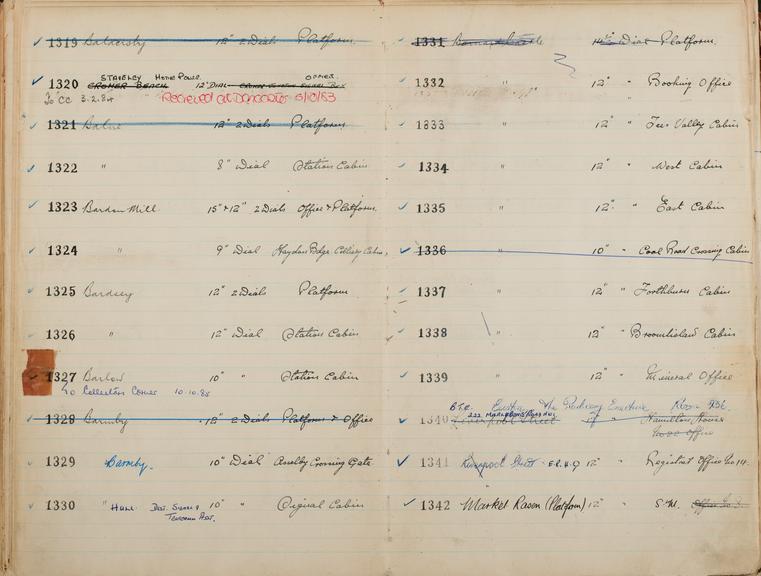 1319 Baldersby 12" 2 Dials Platform.
STAVELEY Home Power OFFICE.
1320 CROMER BEACH 12" DIAL
To CC 3.2.84 Recieved at Doncaster 5/10/83
1321 Balne 12" 2 Dials Platform
1322 " 8" Dial Station Cabin
1323 Bardon Mill 15" & 12" 2 Dials Office & Platform.
1324 " 9" Dial Haydon Bdge. Colliery Cabin.
1325 Bardsey 12" 2 Dials Platform
1326 " 12" Dial Station Cabin
1327 Barlow 10" " Station Cabin
To Collectors Corner 10.10.85
1328 Barmby 12" 2 Dials Platform & Office
1329 Barmby. 10" Dial Anelby Crossing Gate
1330 " HULL Dist. Signal & 10" " Original Cabin
Telecomm Asst.
1331 Barnard Castle 14½" Dial Platform.
1332 " 12" " Booking Office
1333 " 12" " Tees Valley Cabin
1334 " 12" " West Cabin
1335 " 12" " East Cabin
1336 10" " Coal Road Crossing Cabin
1337 " 12" " Forthburn Cabin
1338 " 12" " Broomielaw Cabin
1339 " 12" " Mineral Office
B.T.C. Euston The Railway Executive Room 236.
222 MARYLEBONE ROAD NW1
1340 Liverpool Street 12" Hamilton House
Office
1341 Liverpool Street - E.R. H.Q 12" Registrat Office No 14.
1342 Market Rasen (Platform) 12" " S.M. Office No 3